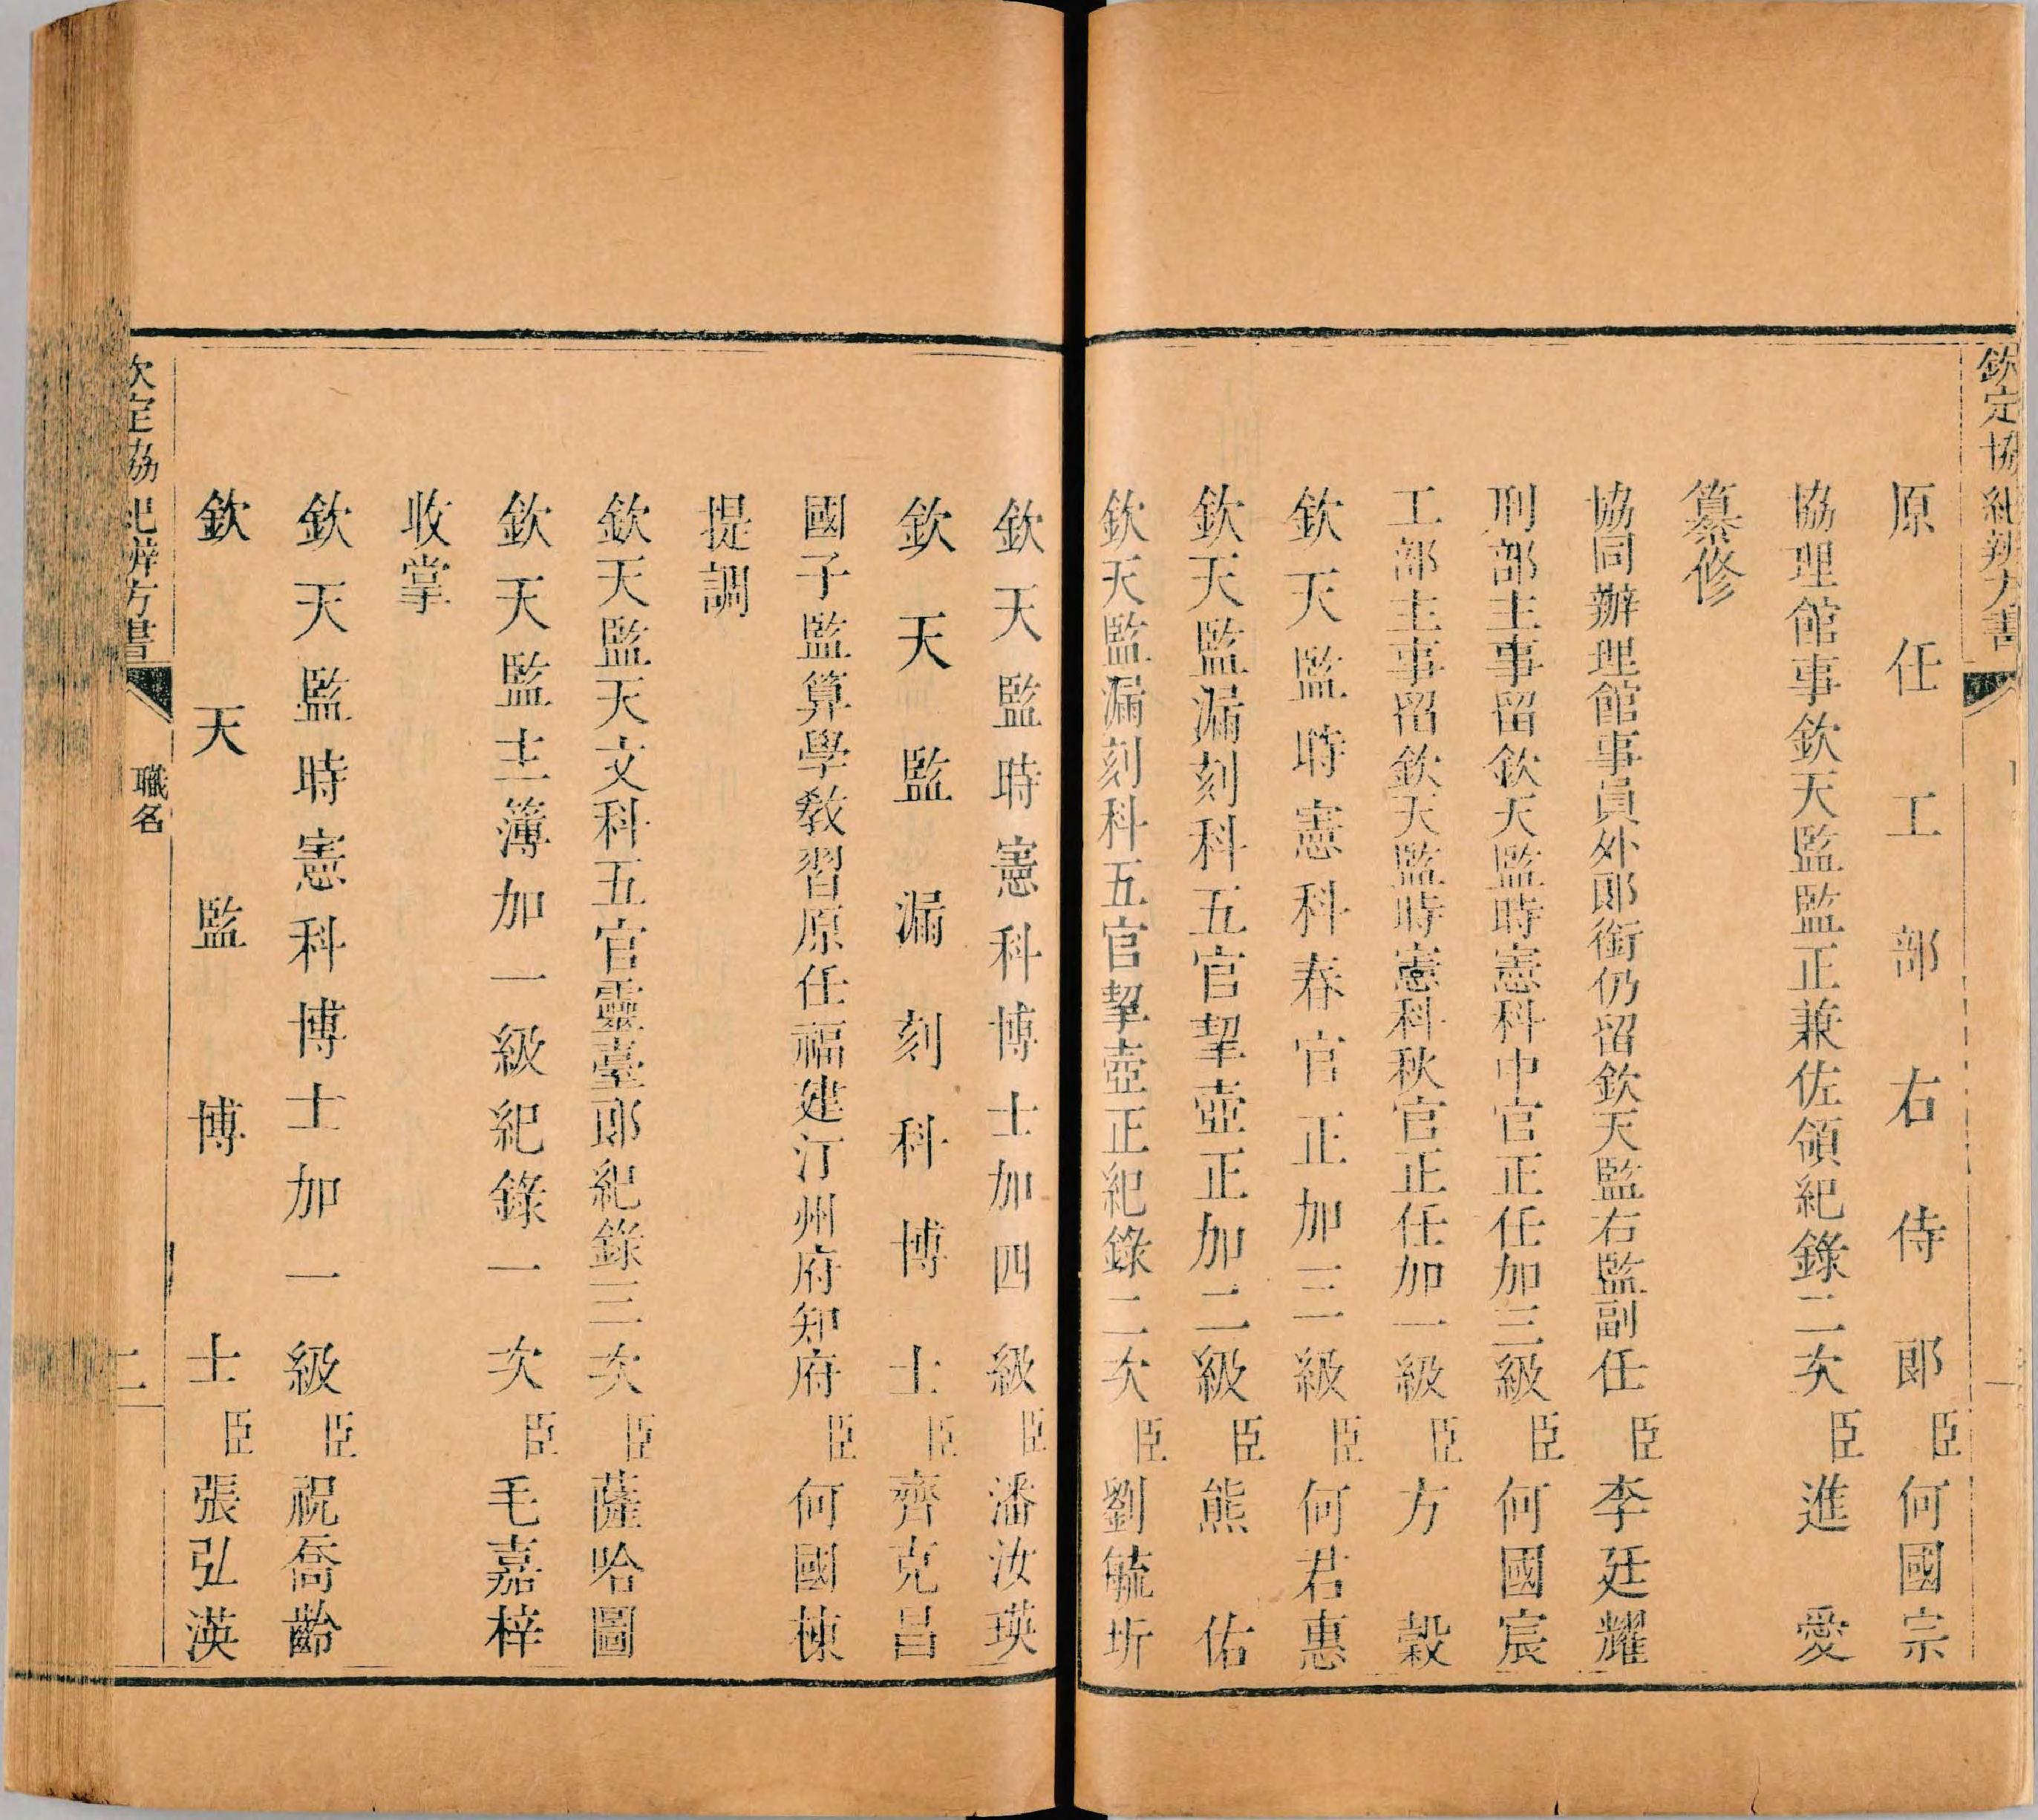 欽定協紀辨方書
原任工部右侍郎臣何國宗
協理館事欽天監監正兼佐領紀錄二次臣進愛
纂修
協同辦理館事員外郎銜仍留欽天監右監副任臣李廷耀
刑部主事留欽天監時憲科中官正任加三級臣何國宸
工部主事留欽天監時憲科秋官正任加一級臣方穀
欽天監時憲科春官正加三級臣何君惠
欽天監漏刻科五官挈壺正加二級臣熊佑
欽天監漏刻科五官挈壺正紀錄二次臣劉毓圻
欽天監時憲科博士加四級臣潘汝瑛
欽天監漏刻科博士臣齊克昌
國子監算學教習原任福建汀州府知府臣何國棟
提調
欽天監天文科五官靈臺郎紀錄三次臣薩哈圖
欽天監主簿加一級紀錄一次臣毛嘉梓
收掌
欽天監時憲科博士加一級臣祝喬齡
欽天監博士臣張弘渶
欽定協紀辨方書 職名 二